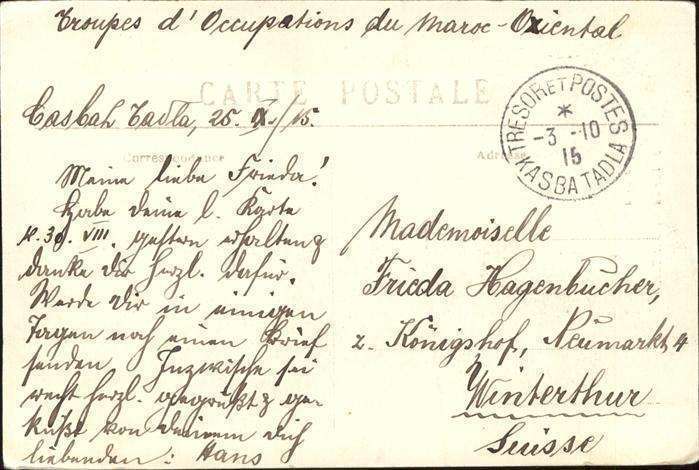 Troupes d'Occupations du Maroc-Oriental
CARTE POSTALE
Casbah Tadla, 25. IX./15.
TRESOR ET POSTES
*
-3 -10
15
KASBA TADLA
Correspondance
Adresse
Meine liebe Frieda!
Habe deine l. Karte
v. 30. VIII. gestern erhalten &
danke dir herzl. dafür.
Werde dir in einigen
Tagen noch einen Brief
senden. Inzwischen sei
recht herzl. gegrüßt & ge-
küßt von deinem dich
liebenden: Hans
Mademoiselle
Frieda Hagenbucher,
z. Königshof, Neumarkt 4
Winterthur
Suisse